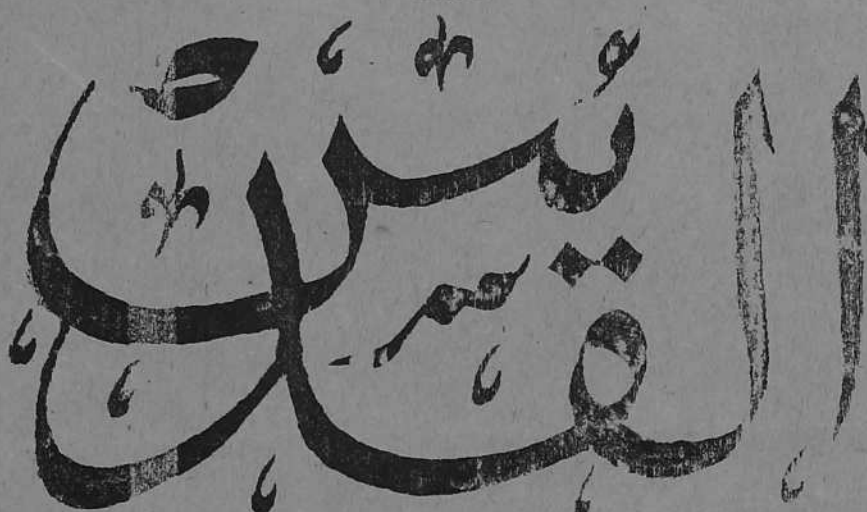 القدس